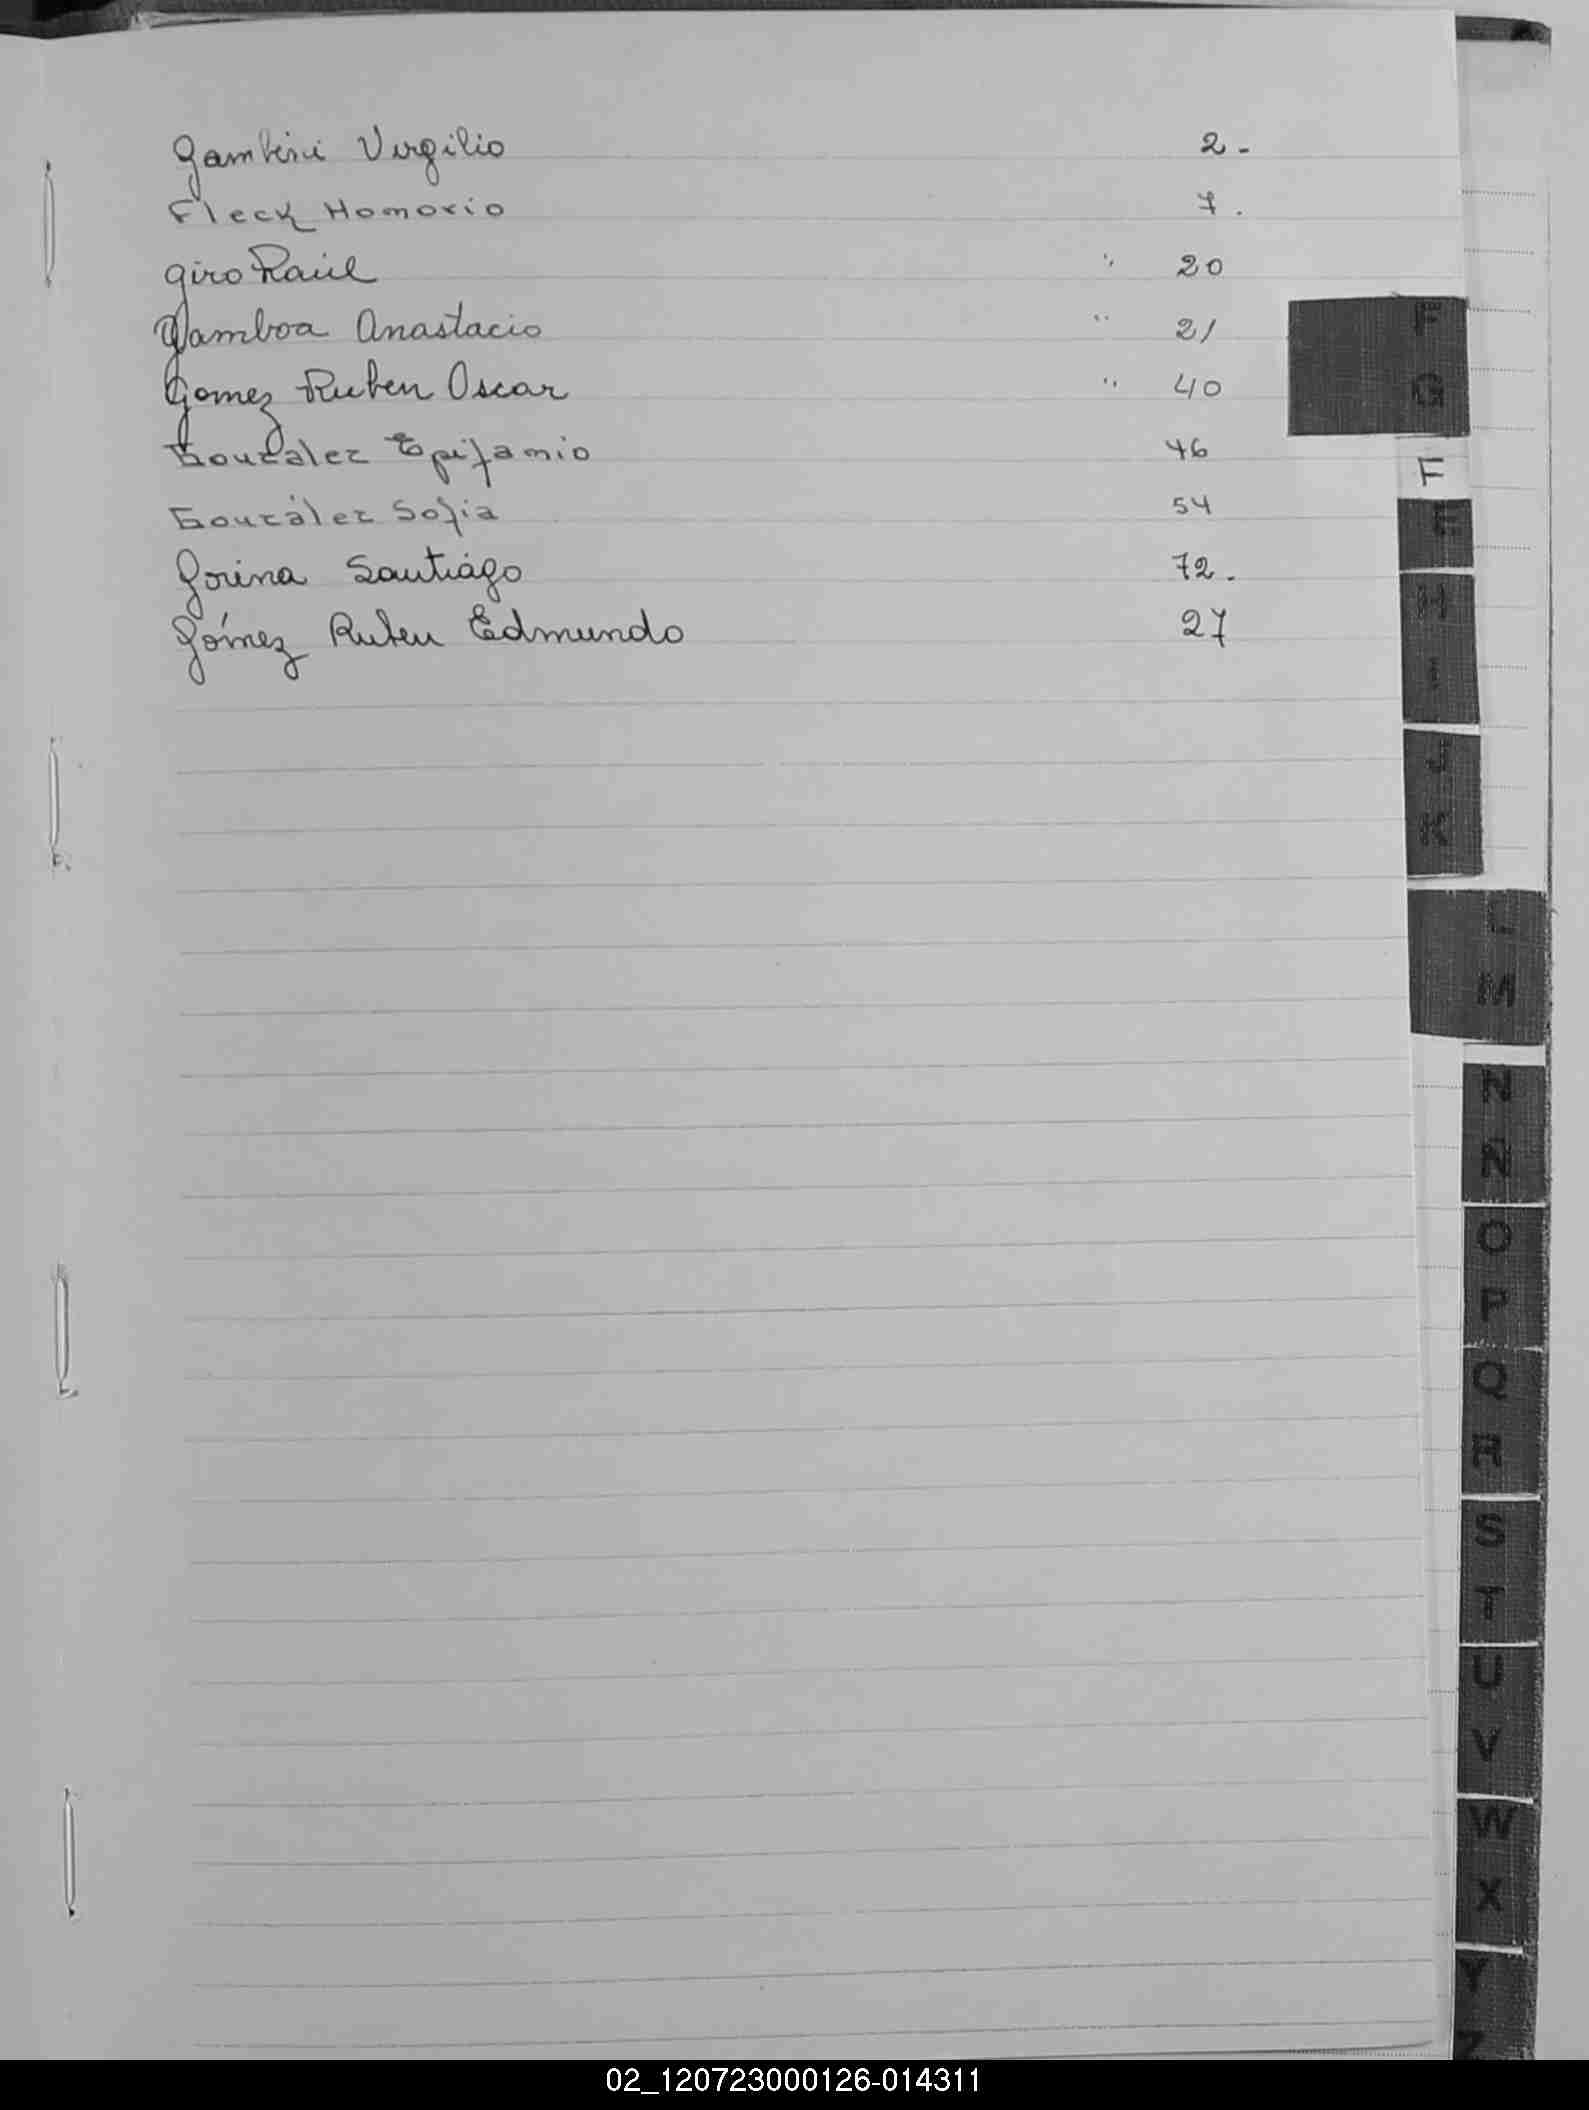 Gambini Virgilio 2.-
Fleck Homorio 7.
Giro Raúl " 20
Gamboa Anastacio " 21
Gomez Ruben Oscar " 40
González Epifanio 46
González Sofia 54
Gorina Santiago 72.
Gómez Ruben Edmundo 27
F
G
F
E
H
I
J
K
L
M
N
Ñ
O
P
Q
R
S
T
U
V
W
X
Y
Z
02_120723000126-014311